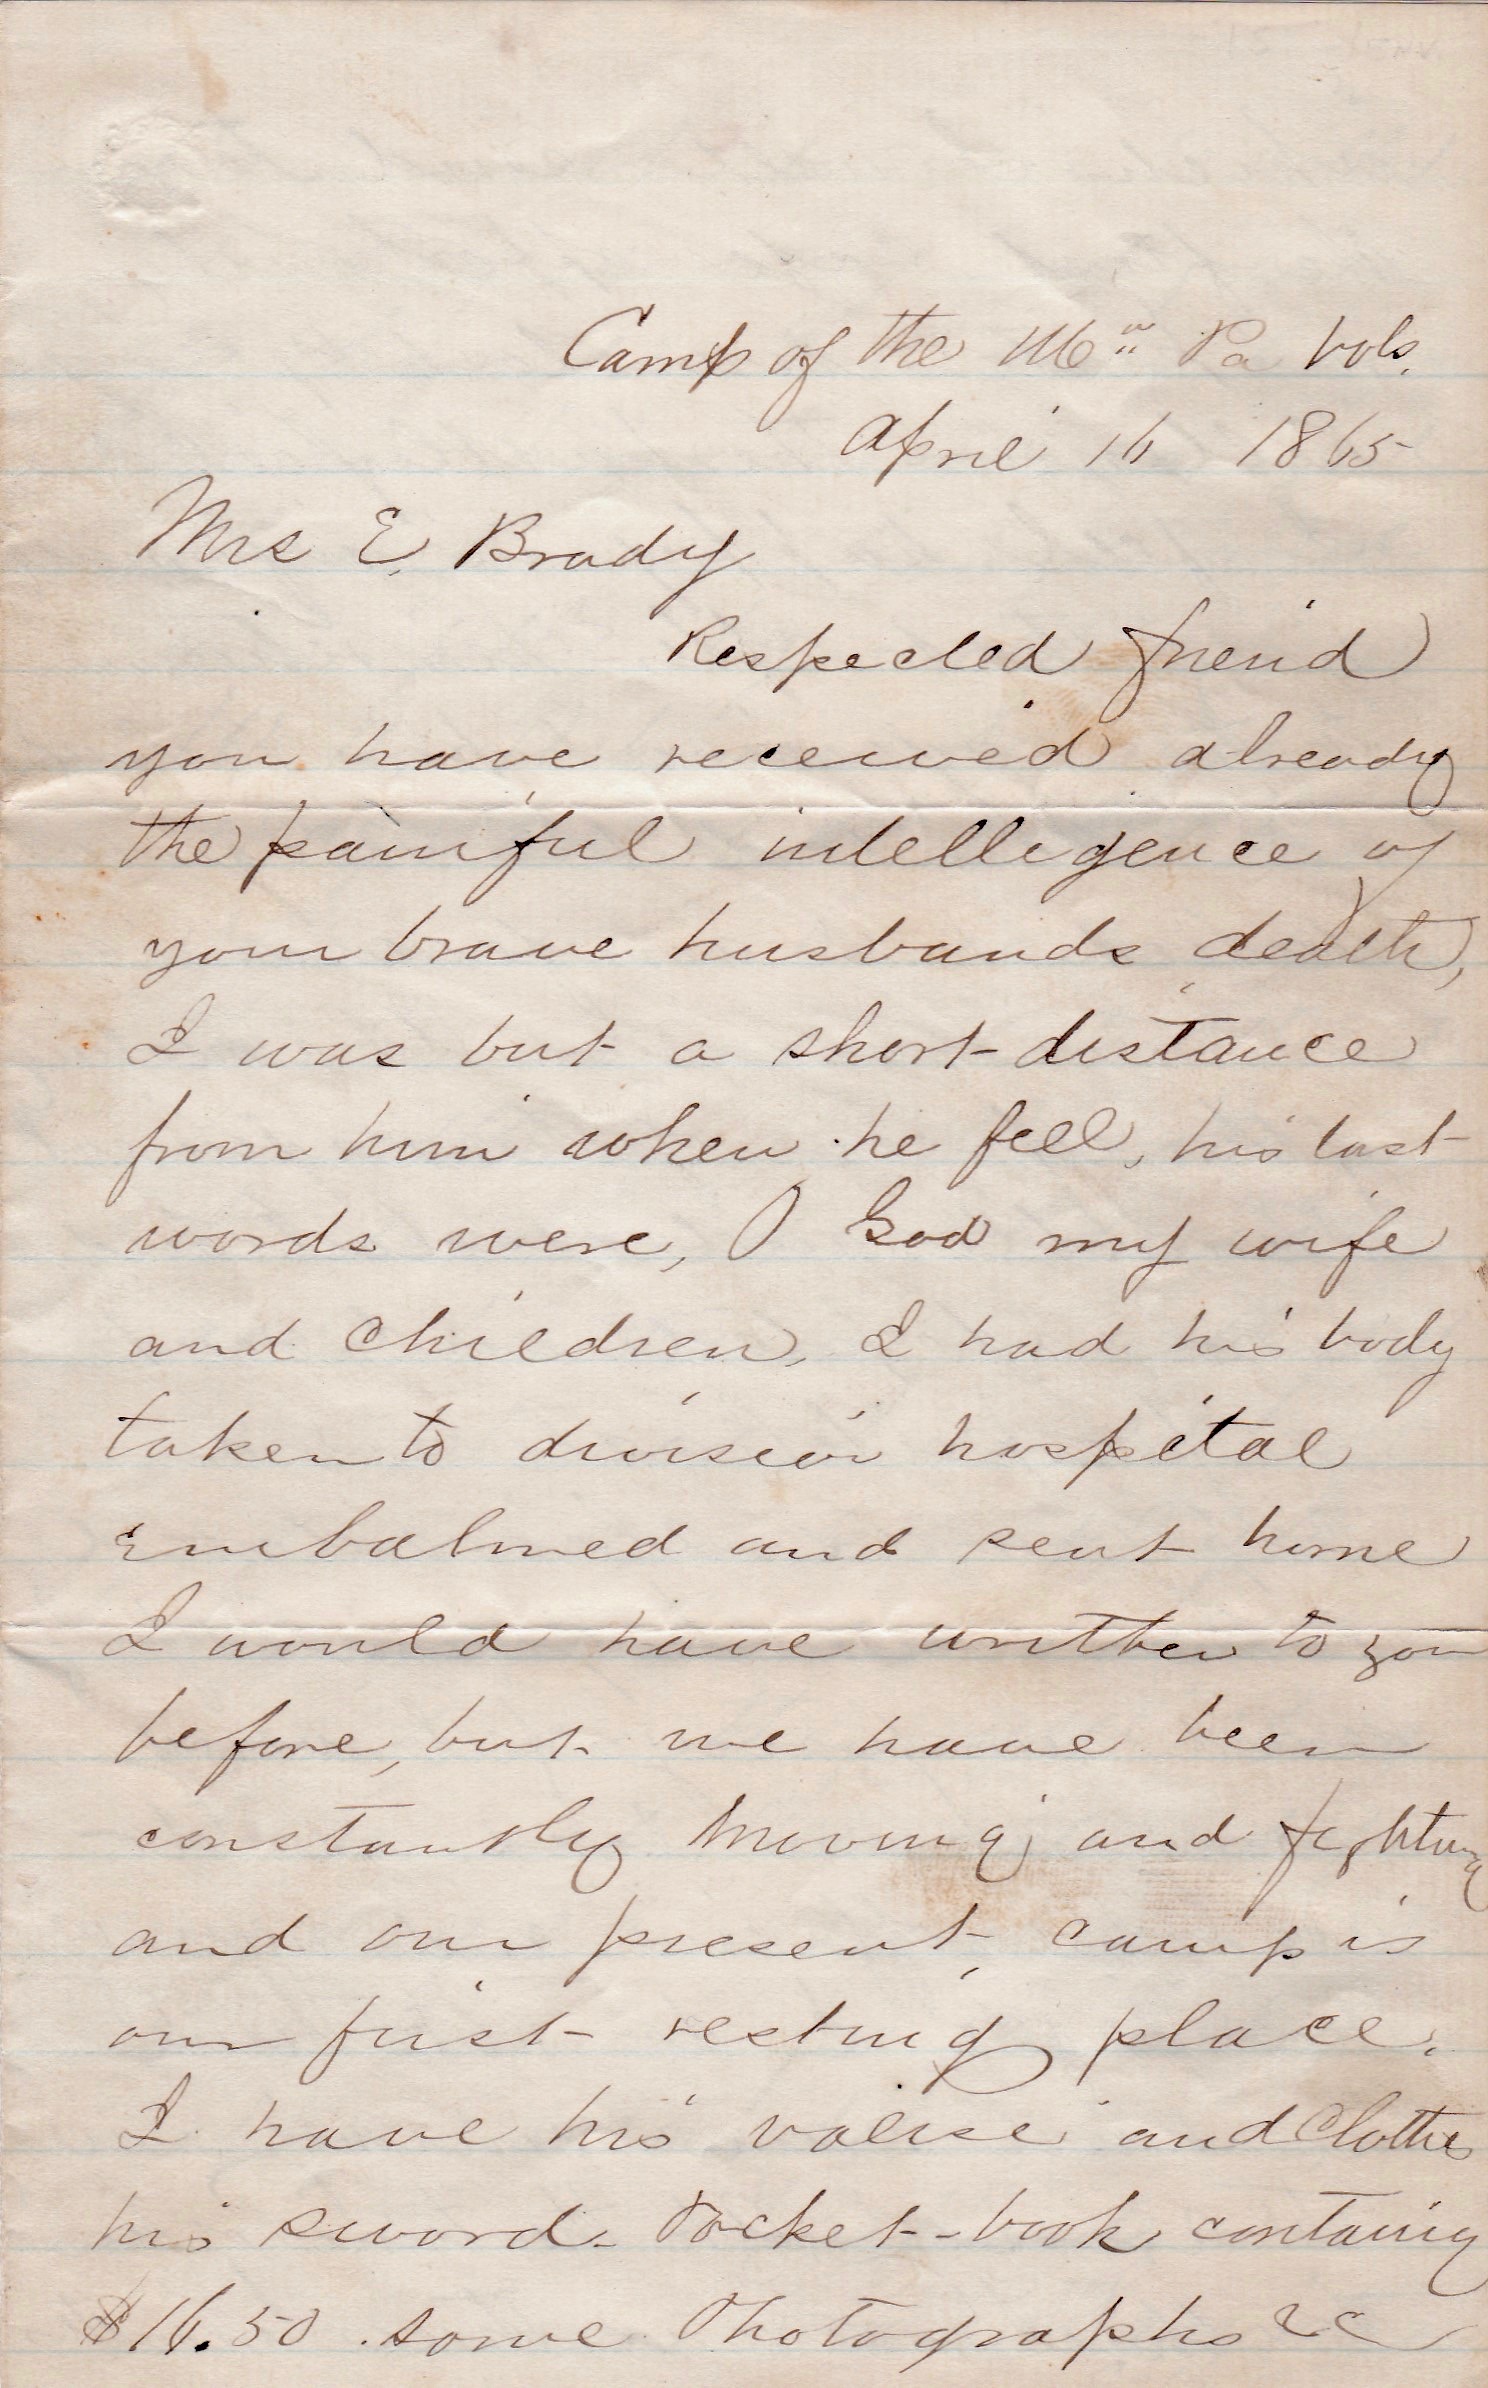 Camp of the 116" Pa Vols.
April 16 1865
Mrs E. Brady
Respected friend
you have received already
the painful intellegence of
your brave husbands death,
I was but a short distance
from him when he fell, his last
words were, O God my wife
and children, I had his body
taken to division hospital
Embalmed and sent home
I would have written to you
before, but we have been
constantly moving and fighting
and our present camp is
our first resting place.
I have his valise and Clothes
his sword. Pocket-book containig
$16.50 some Photographs &c